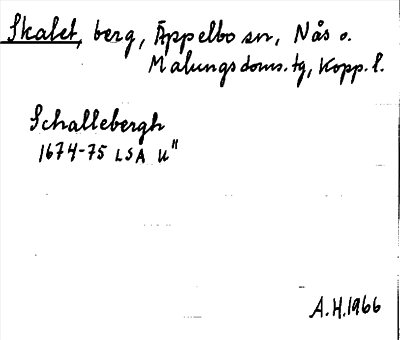 Skalet, berg, Äppelbo sn, Nås o.
Malungs doms. tg, Kopp. l.
Schallebergh
1674-75 LSA U"
A.H. 1966